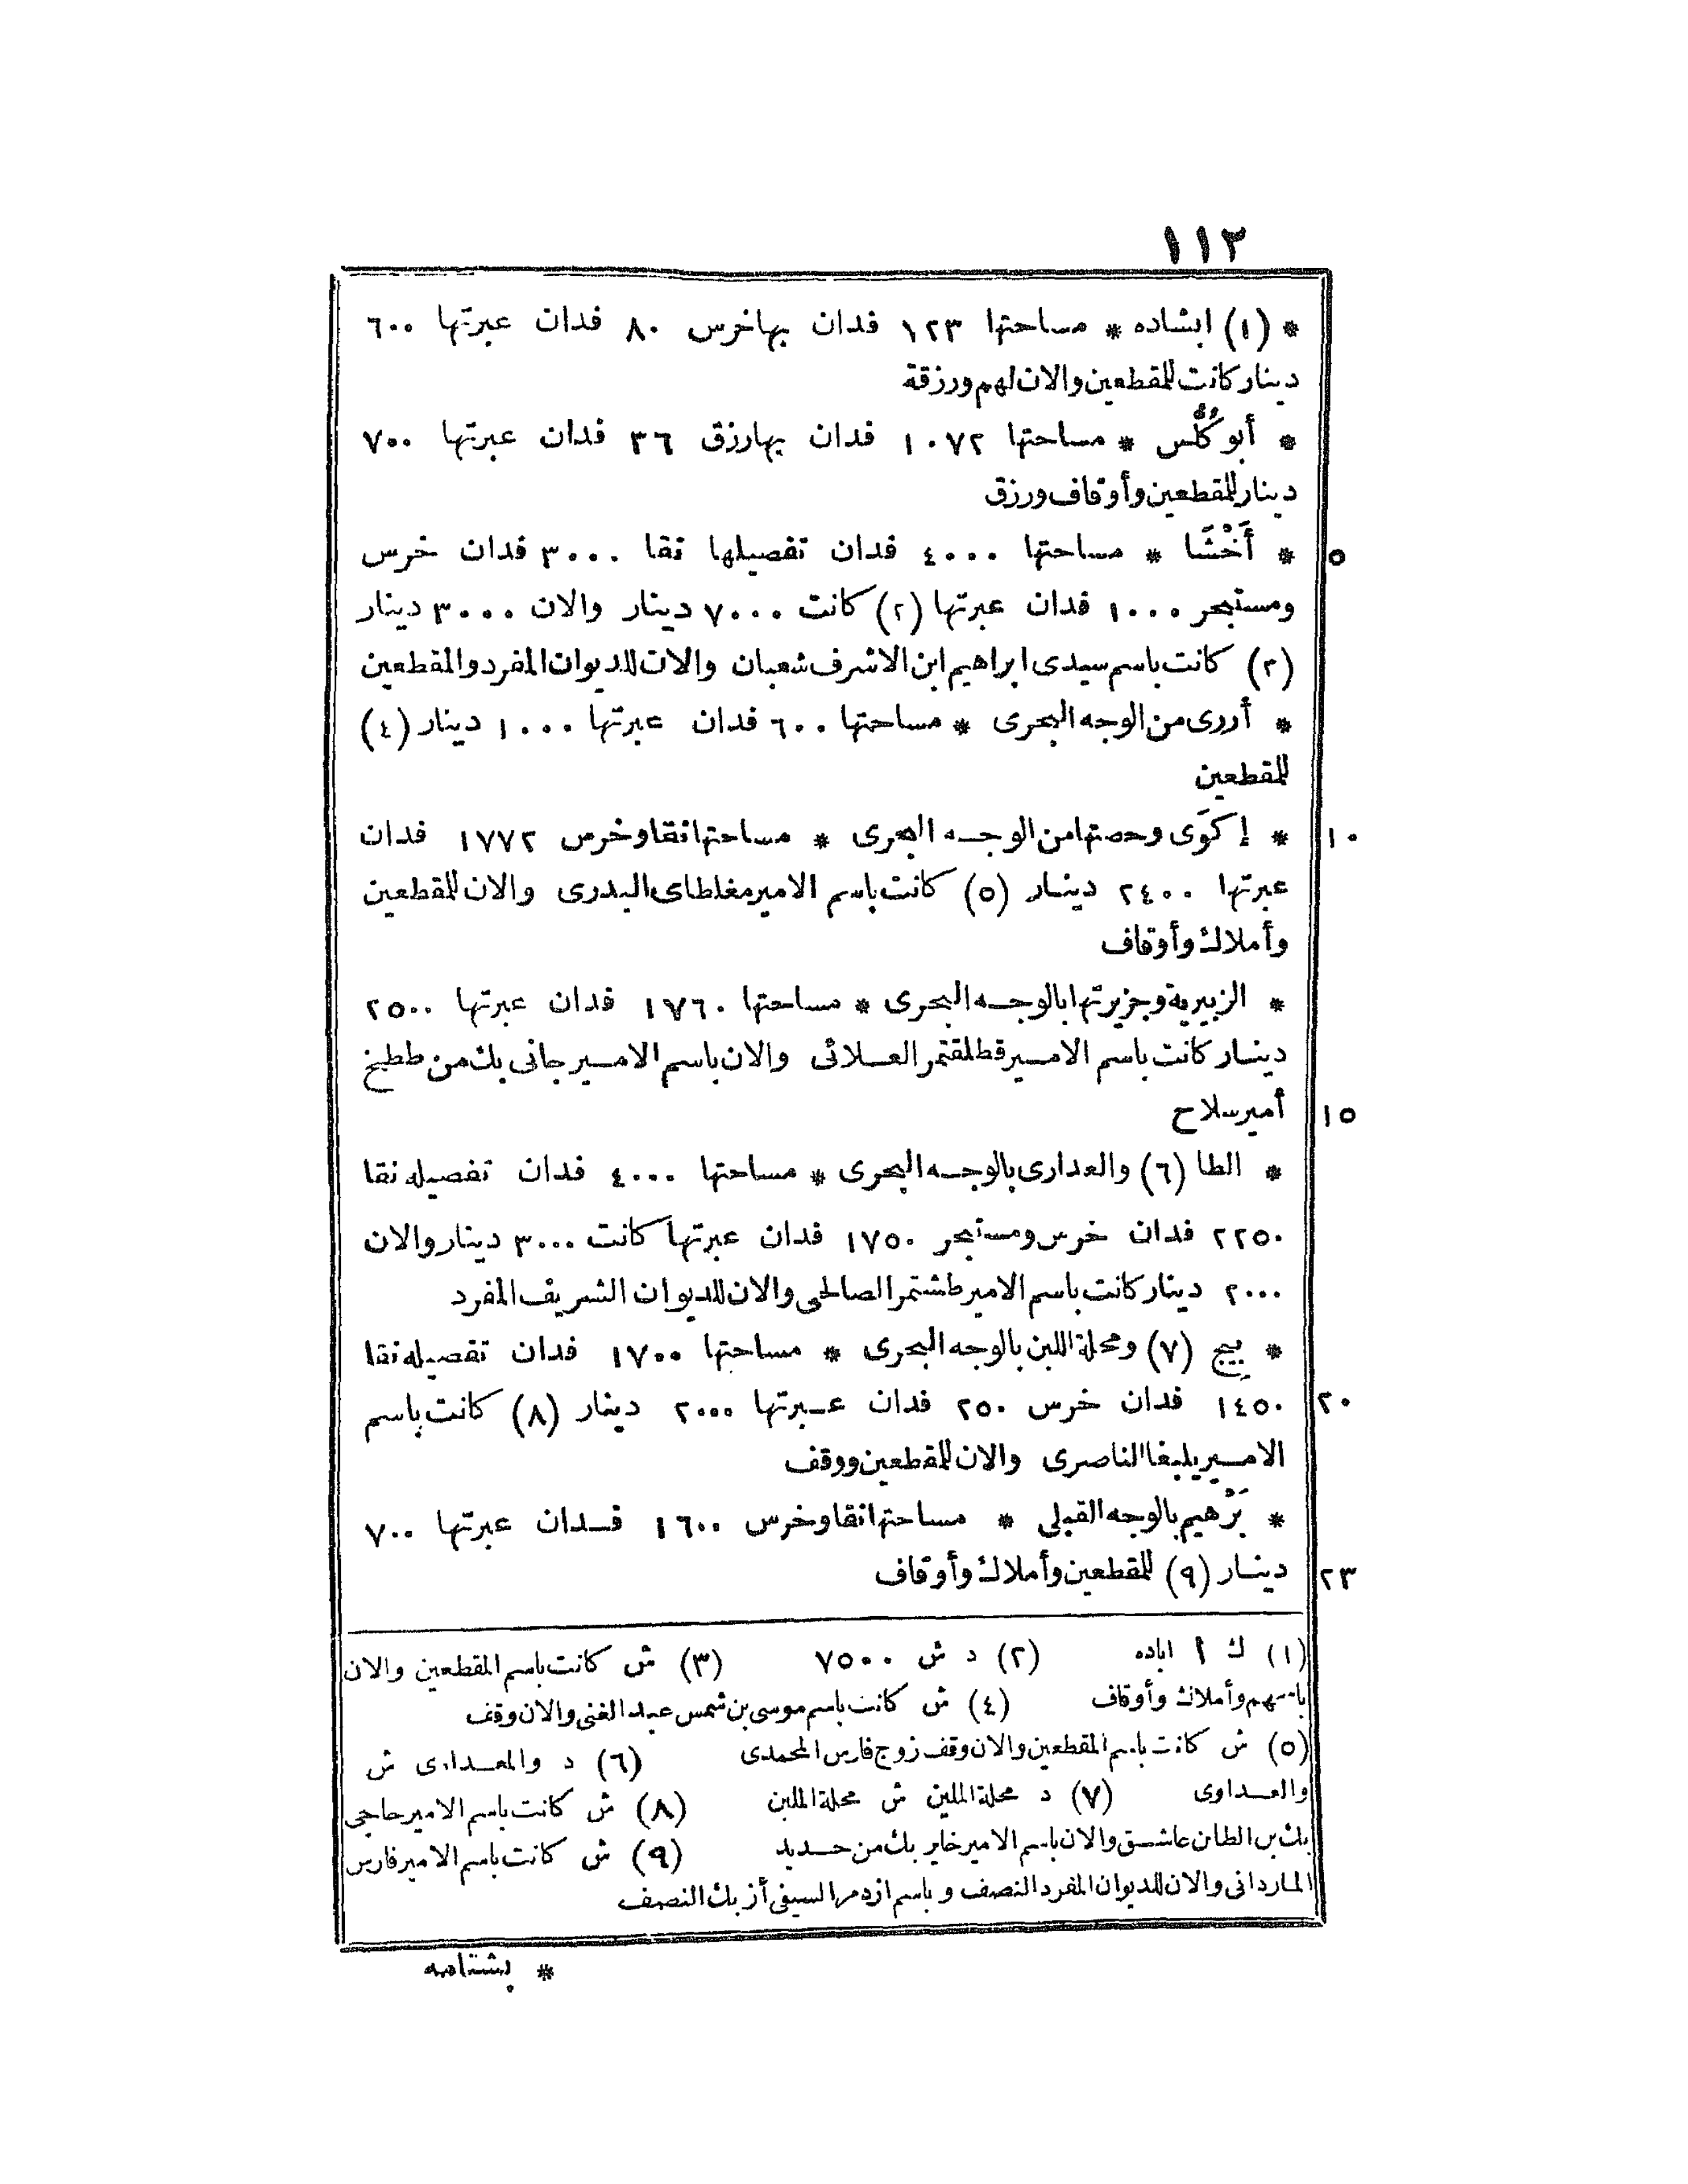 ١١٢
* (١) ابشاده * مساحتها ١٢٣ فدان بها خرس ٨٠ فدان عبرتها ٦٠٠
دينار كانت للمقطعين والان لهم ورزقة
* أبو كُلُّس * مساحتها ١٠٧٢ فدان بها رزق ٣٦ فدان عبرتها ٧٠٠
دينار للمقطعين وأوقاف ورزق
* أَخْشَا * مساحتها ٤٠٠٠ فدان تفصيلها نقا ٣٠٠٠ فدان خرس ٥
ومستبحر ١٠٠٠ فدان عبرتها (٢) كانت ٧٠٠٠ دينار والان ٣٠٠٠ دينار
(٣) كانت باسم سيدى ابراهيم ابن الاشرف شعبان والان للديوان المفرد والمقطعين
* أررى من الوجه البحرى * مساحتها ٦٠٠ فدان عبرتها ١٠٠٠ دينار (٤)
للمقطعين
* إكوَى وحصتها من الوجه البحرى * مساحتها نقا وخرس ١٧٧٢ فدان ١٠
عبرتها ٢٤٠٠ دينار (٥) كانت باسم الامير مغلطاى البدرى والان للمقطعين
وأملاك وأوقاف
* الزبيرية وجزيرتها بالوجه البحرى * مساحتها ١٧٦٠ فدان عبرتها ٢٥٠٠
دينار كانت باسم الامير قطلقتمر العلائى والان باسم الامير جانى بك من ططخ
أمير سلاح ١٥
* الطا (٦) والعدارى بالوجه البحرى * مساحتها ٤٠٠٠ فدان تفصيله نقا
٢٢٥٠ فدان خرس ومستبحر ١٧٥٠ فدان عبرتها كانت ٣٠٠٠ دينار والان
٢٠٠٠ دينار كانت باسم الامير طشتمر الصالحى والان للديوان الشريف المفرد
* بيبج (٧) ومحلة اللبن بالوجه البحرى * مساحتها ١٧٠٠ فدان تفصيله نقا
١٤٥٠ فدان خرس ٢٥٠ فدان عبرتها ٢٠٠٠ دينار (٨) كانت باسم ٢٠
الامير يلبغا الناصرى والان للمقطعين ووقف
* بَرْهيم بالوجه القبلى * مساحتها نقا وخرس ١٦٠٠ فدان عبرتها ٧٠٠
دينار (٩) للمقطعين وأملاك وأوقاف ٢٣
(١) ك أ اباده (٢) د ش ٧٥٠٠ (٣) ش كانت باسم المقطعين والان
باسمهم وأملاك وأوقاف (٤) ش كانت باسم موسى بن شمس عبد الغنى والان وقف
(٥) ش كانت باسم المقطعين والان وقف زوج فارس المحمدى (٦) د والمعدادى ش
والعداوى (٧) د محلة الملين ش محلة الملبن (٨) ش كانت باسم الامير حاجى
بك بن الطان عاشق والان باسم الامير خاير بك من حديد (٩) ش كانت باسم الامير فارس
الماردانى والان للديوان المفرد النصف وباسم ازدمر السيفى أزبك النصف
* بشتامه